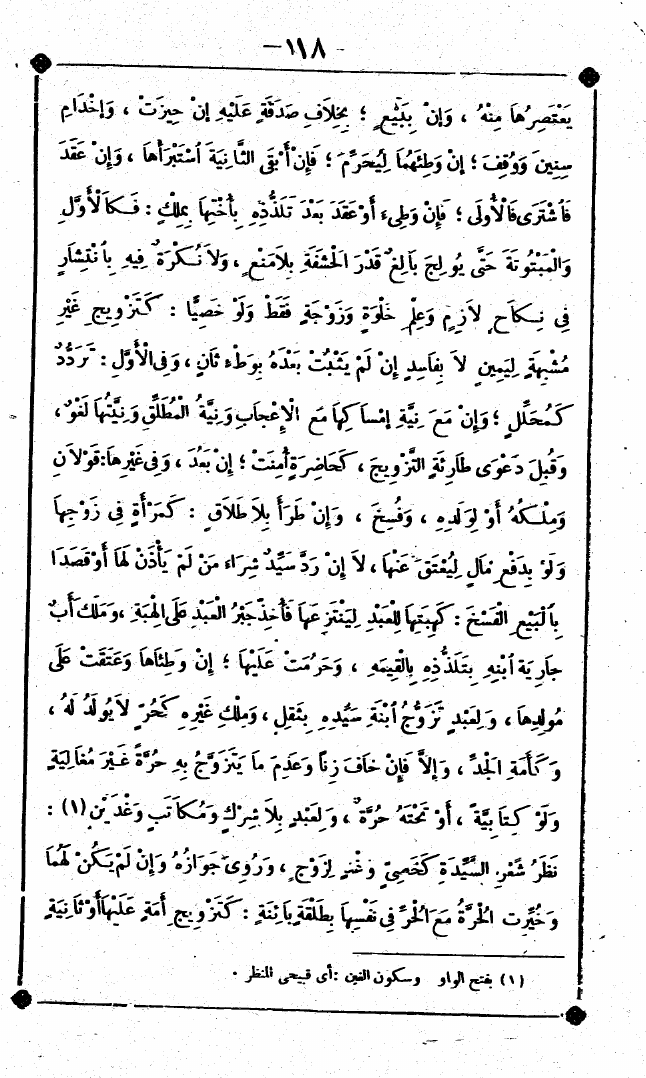 - ١١٨ -
يَعْتَصِرُهَا مِنْهُ ، وَإِنْ بِبَيْعٍ ؛ بِخِلاَفِ صَدَقَةٍ عَلَيْهِ إِنْ حِيزَتْ ، وَإِخْدَامِ
سِنِينَ وَوُقِفَ ؛ إِنْ وَطِئَهُمَا لِيُحَرِّمَ ؛ فَإِنْ أَبْقَى الثَّانِيَةَ اسْتَبْرَأَهَا ، وَإِنْ عَقَدَ
فَاشْتَرَى فَالْأُولَى ؛ فَإِنْ وَطِىءَ أَوْ عَقَدَ بَعْدَ تَلَذُّذِهِ بِأُخْتِهَا بِمِلْكٍ : فَكَالْأَوَّلِ
وَالْمَبْتُوتَةَ حَتَّى يُولِجَ بَالِغٌ قَدْرَ الْحَشَفَةِ بِلاَ مَنْعٍ ، وَلاَ نُكْرَةَ فِيهِ بِانْتِشَارٍ
فِي نِكَاحٍ لاَزِمٍ وَعِلْمِ خَلْوَةٍ وَزَوْجَةٍ فَقَطْ وَلَوْ خَصِيًّا : كَتَزْوِيجِ غَيْرِ
مُشْبِهَةٍ لِيَمِينٍ لاَ بِفَاسِدٍ إِنْ لَمْ يَثْبُتْ بَعْدَهُ بِوَطْءٍ ثَانٍ ، وَفِى الْأَوَّلِ : تَرَدُّدٌ
كَمُحَلِّلٍ ؛ وَإِنْ مَعَ نِيَّةِ إِمْسَاكِهَا مَعَ الْإِعْجَابِ وَنِيَّةُ الْمُطَلِّقِ وَنِيَّتُهَا لَغْوٌ ،
وَقُبِلَ دَعْوَى طَارِئَةٍ التَّزْوِيجَ ، كَحَاضِرَةٍ أُمِنَتْ ؛ إِنْ بَعُدَ ، وَفِى غَيْرِهَا : قَوْلاَنِ
وَمِلْكُهُ أَوْ لِوَلَدِهِ ، وَفُسِخَ ، وَإِنْ طَرَأَ بِلاَ طَلاَقٍ : كَمَرْأَةٍ فِى زَوْجِهَا
وَلَوْ بِدَفْعِ مَالٍ لِيُعْتَقَ عَنْهَا ، لاَ إِنْ رَدَّ سَيِّدٌ شِرَاءَ مَنْ لَمْ يَأْذَنْ لَهَا أَوْ قَصَدَا
بِالْبَيْعِ الْفَسْخَ : كَهِبَتِهَا لِلْعَبْدِ لِيَنْتَزِعَهَا فَأُخِذَ جَبْرُ الْعَبْدِ عَلَى الْهِبَةِ ، وَمَلَكَ أَبٌ
جَارِيَةَ ابْنِهِ بِتَلَذُّذِهِ بِالْقِيمَةِ ، وَحَرُمَتْ عَلَيْهِمَا ؛ إِنْ وَطِئَاهَا وَعَتَقَتْ عَلَى
مُولِدِهَا ، وَلِعَبْدٍ تَزَوُّجُ ابْنَةِ سَيِّدِهِ بِثِقَلٍ ، وَمِلْكِ غَيْرِهِ كَحُرٍّ لاَ يُولَدُ لَهُ ،
وَكَأَمَةِ الْجَدِّ ، وَإِلاَّ فَإِنْ خَافَ زِنًا وَعَدِمَ مَا يَتَزَوَّجُ بِهِ حُرَّةً غَيْرَ مُغَالِيَةٍ
وَلَوْ كِتَابِيَّةً ، أَوْ تَحْتَهُ حُرَّةٌ ، وَلِعَبْدٍ بِلاَ شِرْكٍ وَمُكَاتَبٍ وَغْدَيْنِ (١) :
نَظَرُ شَعْرِ السَّيِّدَةِ كَخَصِىٍّ وَغْدٍ لِزَوْجٍ ، وَرُوِىَ جَوَازُهُ وَإِنْ لَمْ يَكُنْ لَهُمَا
وَخُيِّرَتِ الْحُرَّةُ مَعَ الْحُرِّ فِى نَفْسِهَا بِطَلْقَةٍ بَائِنَةٍ : كَتَزْوِيجِ أَمَةٍ عَلَيْهَا أَوْ ثَانِيَةٍ
(١) بفتح الواو وسكون الغين : أى قبيحى المنظر .